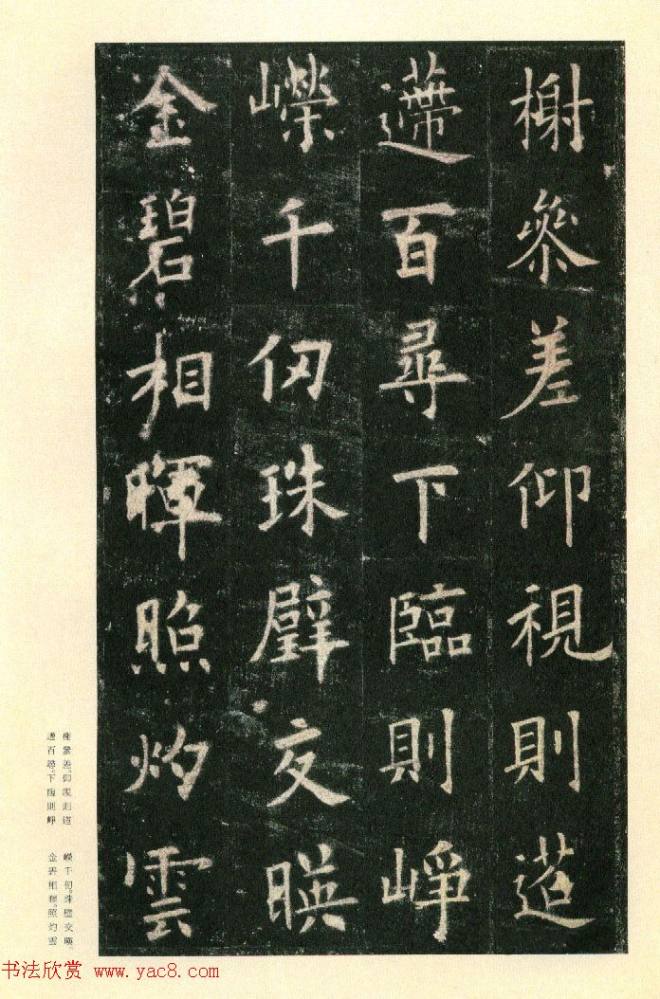 榭參差仰視則迢
遰百尋下臨則崢
嶸千仞珠璧交暎
金碧相暉照灼雲
榭叅差。仰視則迢
遰百尋。下臨則崢
嶸千仞。珠璧交暎。
金碧相暉。照灼雲
书法欣赏 www.yac8.com